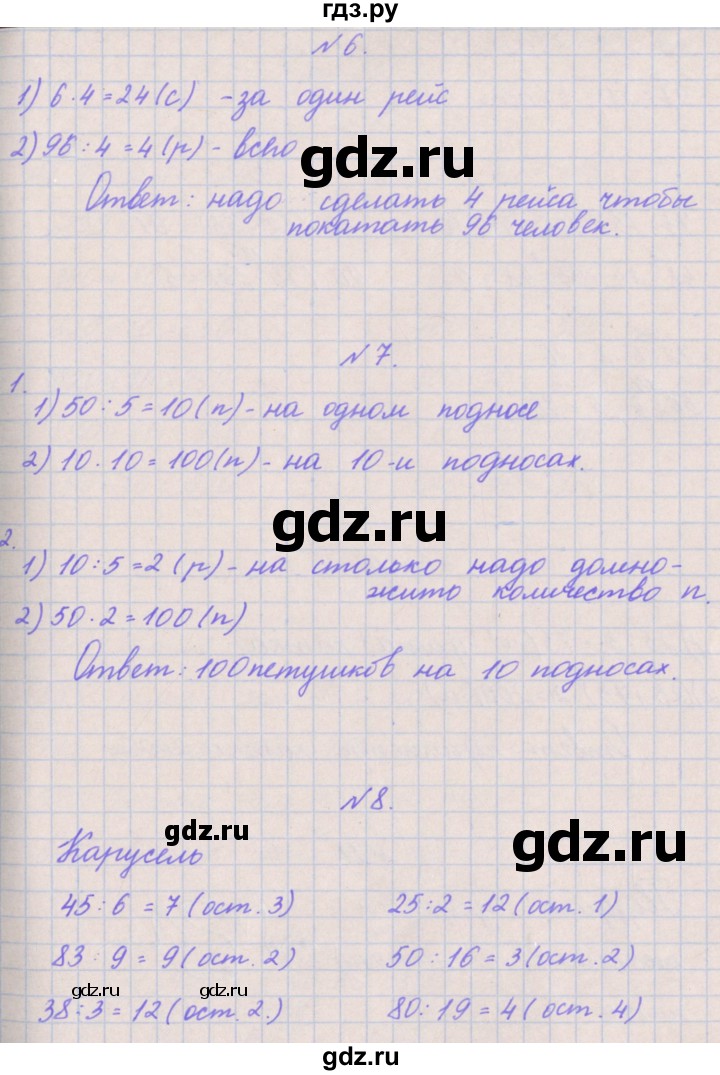 гдз.ру
№6.
1) 6·4=24(с) -за один рейс
2) 96:4=4(р)- всего
gdz.ru
Ответ: надо сделать 4 рейса чтобы
покатать 96 человек.
№7.
1.
1) 50:5=10(п)-на одном подносе
2) 10·10=100(п)-на 10-и подносах.
gdz.ru
2.
1) 10:5=2(р)-на столько надо домно-
жито количество п.
2) 50·2=100(п)
Ответ: 100петушков на 10 подносах.
№8.
gdz.ru
gdz.ru
Карусель
45:6=7(ост.3) 25:2=12(ост.1)
83:9=9(ост.2) 50:16=3(ост.2)
gdz.ru
gdz.ru
38:3=12(ост.2.) 80:19=4(ост.4)
gdz.ru